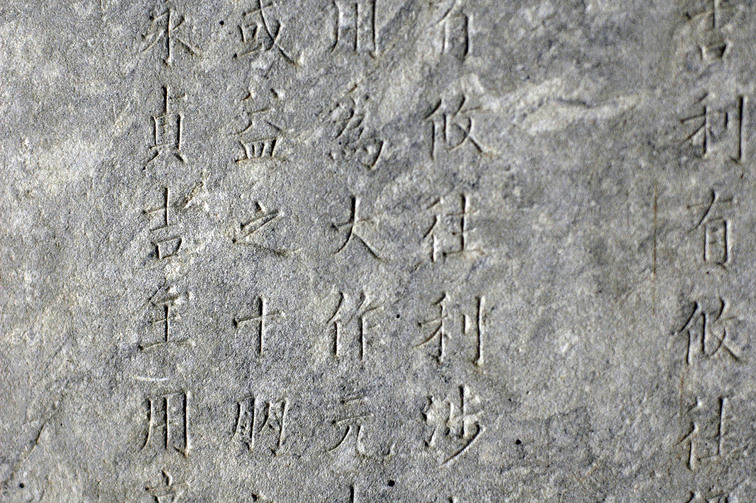 吉利有攸往
有攸往利涉
用為大作元
或益之十朋
永貞吉王用